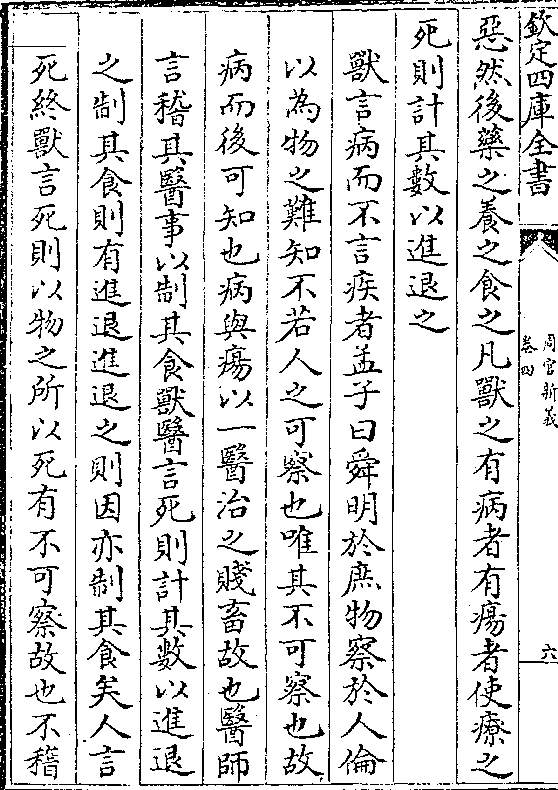 欽定四庫全書
周官新義
卷四
六
惡然後藥之養之食之凡獸之有病者有瘍者使療之
死則計其數以進退之
獸言病而不言疾者孟子曰舜明於庶物察於人倫
以為物之難知不若人之可察也唯其不可察也故
病而後可知也病與瘍以一醫治之賤畜故也醫師
言稽其醫事以制其食獸醫言死則計其數以進退
之制其食則有進退進退之則因亦制其食矣人言
死終獸言死則以物之所以死有不可察故也不稽